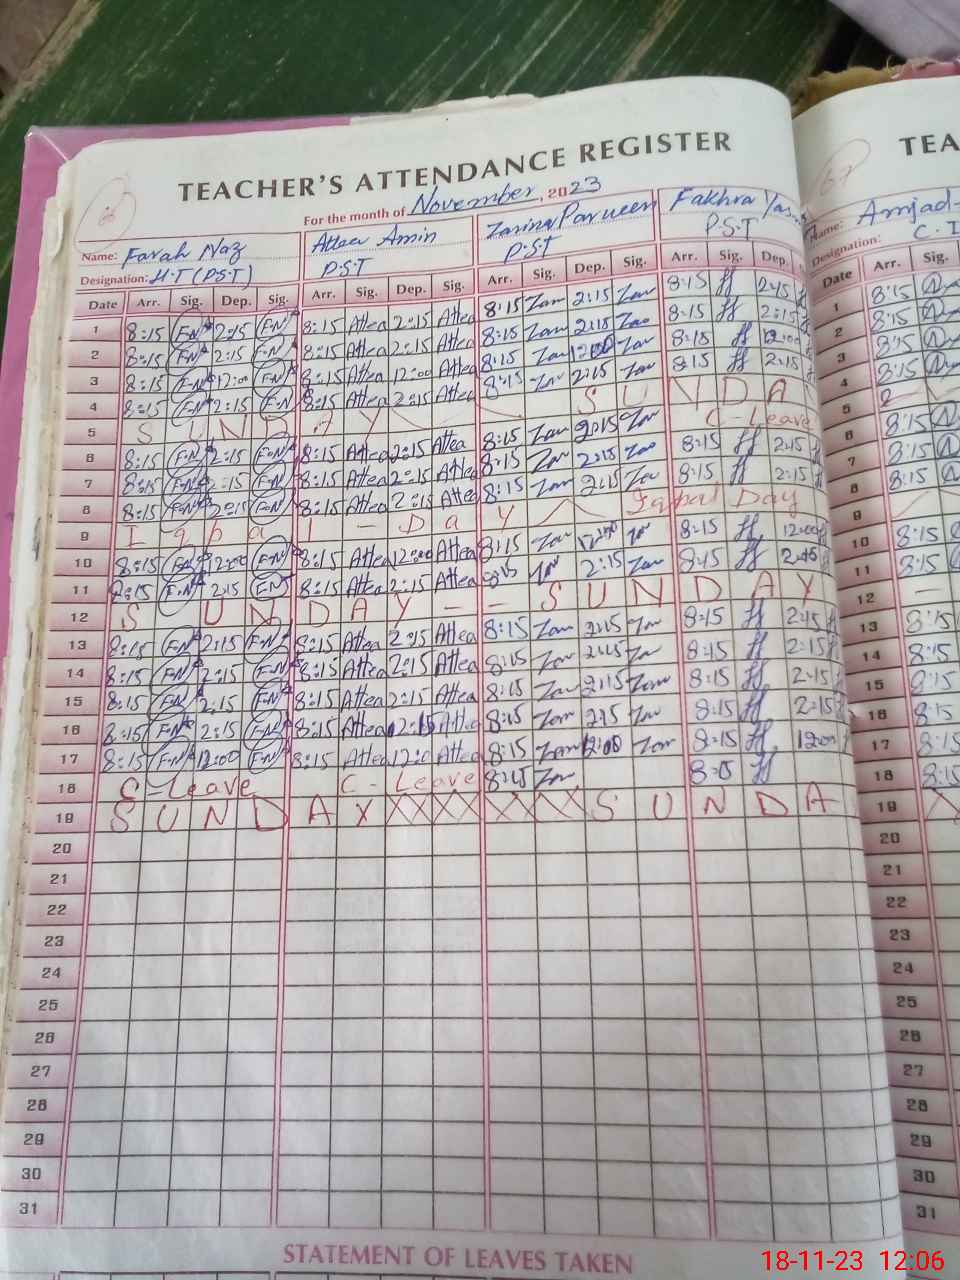 66
TEACHER'S ATTENDANCE REGISTER
For the month of November, 2023
Name: Farah Naz Attea Amin Zarina Parveen Fakhra
Designation: H.T (P.S.T) P.S.T P.S.T P.S.T
Date Arr. Sig. Dep. Sig. Arr. Sig. Dep. Sig. Arr. Sig. Dep. Sig. Arr. Sig. Dep.
1 8:15 F.N 2:15 F.N 8:15 Attea 2:15 Attea 8:15 Zar 2:15 Zar 8:15 2:15
2 8:15 F.N 2:15 F.N 8:15 Attea 2:15 Attea 8:15 Zar 2:15 Zar 8:15 2:15
3 8:15 F.N 12:00 F.N 8:15 Attea 12:00 Attea 8:15 Zar 12:00 Zar 8:15 12:00
4 8:15 F.N 2:15 F.N 8:15 Attea 2:15 Attea 8:15 Zar 2:15 Zar 8:15 2:15
5 S U N D A Y S U N D A
6 8:15 F.N 2:15 F.N 8:15 Attea 2:15 Attea 8:15 Zar 2:15 Zar C-Leave
7 8:15 F.N 2:15 F.N 8:15 Attea 2:15 Attea 8:15 Zar 2:15 Zar 8:15 2:15
8 8:15 F.N 2:15 F.N 8:15 Attea 2:15 Attea 8:15 Zar 2:15 Zar 8:15 2:15
9 I q b a l - D a y Iqbal Day
10 8:15 F.N 12:00 F.N 8:15 Attea 12:00 Attea 8:15 Zar 12:00 Zar 8:15 12:00
11 8:15 F.N 2:15 F.N 8:15 Attea 2:15 Attea 8:15 Zar 2:15 Zar 8:15 2:15
12 S U N D A Y - - S U N D A Y
13 8:15 F.N 2:15 F.N 8:15 Attea 2:15 Attea 8:15 Zar 2:15 Zar 8:15 2:15
14 8:15 F.N 2:15 F.N 8:15 Attea 2:15 Attea 8:15 Zar 2:15 Zar 8:15 2:15
15 8:15 F.N 2:15 F.N 8:15 Attea 2:15 Attea 8:15 Zar 2:15 Zar 8:15 2:15
16 8:15 F.N 2:15 F.N 8:15 Attea 2:15 Attea 8:15 Zar 2:15 Zar 8:15 2:15
17 8:15 F.N 12:00 F.N 8:15 Attea 12:00 Attea 8:15 Zar 12:00 Zar 8:15 12:00
18 C-Leave C-Leave 8:15 Zar 8:15
19 S U N D A Y S U N D A
20
21
22
23
24
25
26
27
28
29
30
31
STATEMENT OF LEAVES TAKEN
67
TEA
Name: Amjad
Designation: C.I
Date Arr. Sig.
1 8:15
2 8:15
3 8:15
4 8:15
5
6 8:15
7 8:15
8 8:15
9
10 8:15
11 8:15
12
13 8:15
14 8:15
15 8:15
16 8:15
17 8:15
18 8:15
19
20
21
22
23
24
25
26
27
28
29
30
31
18-11-23 12:06